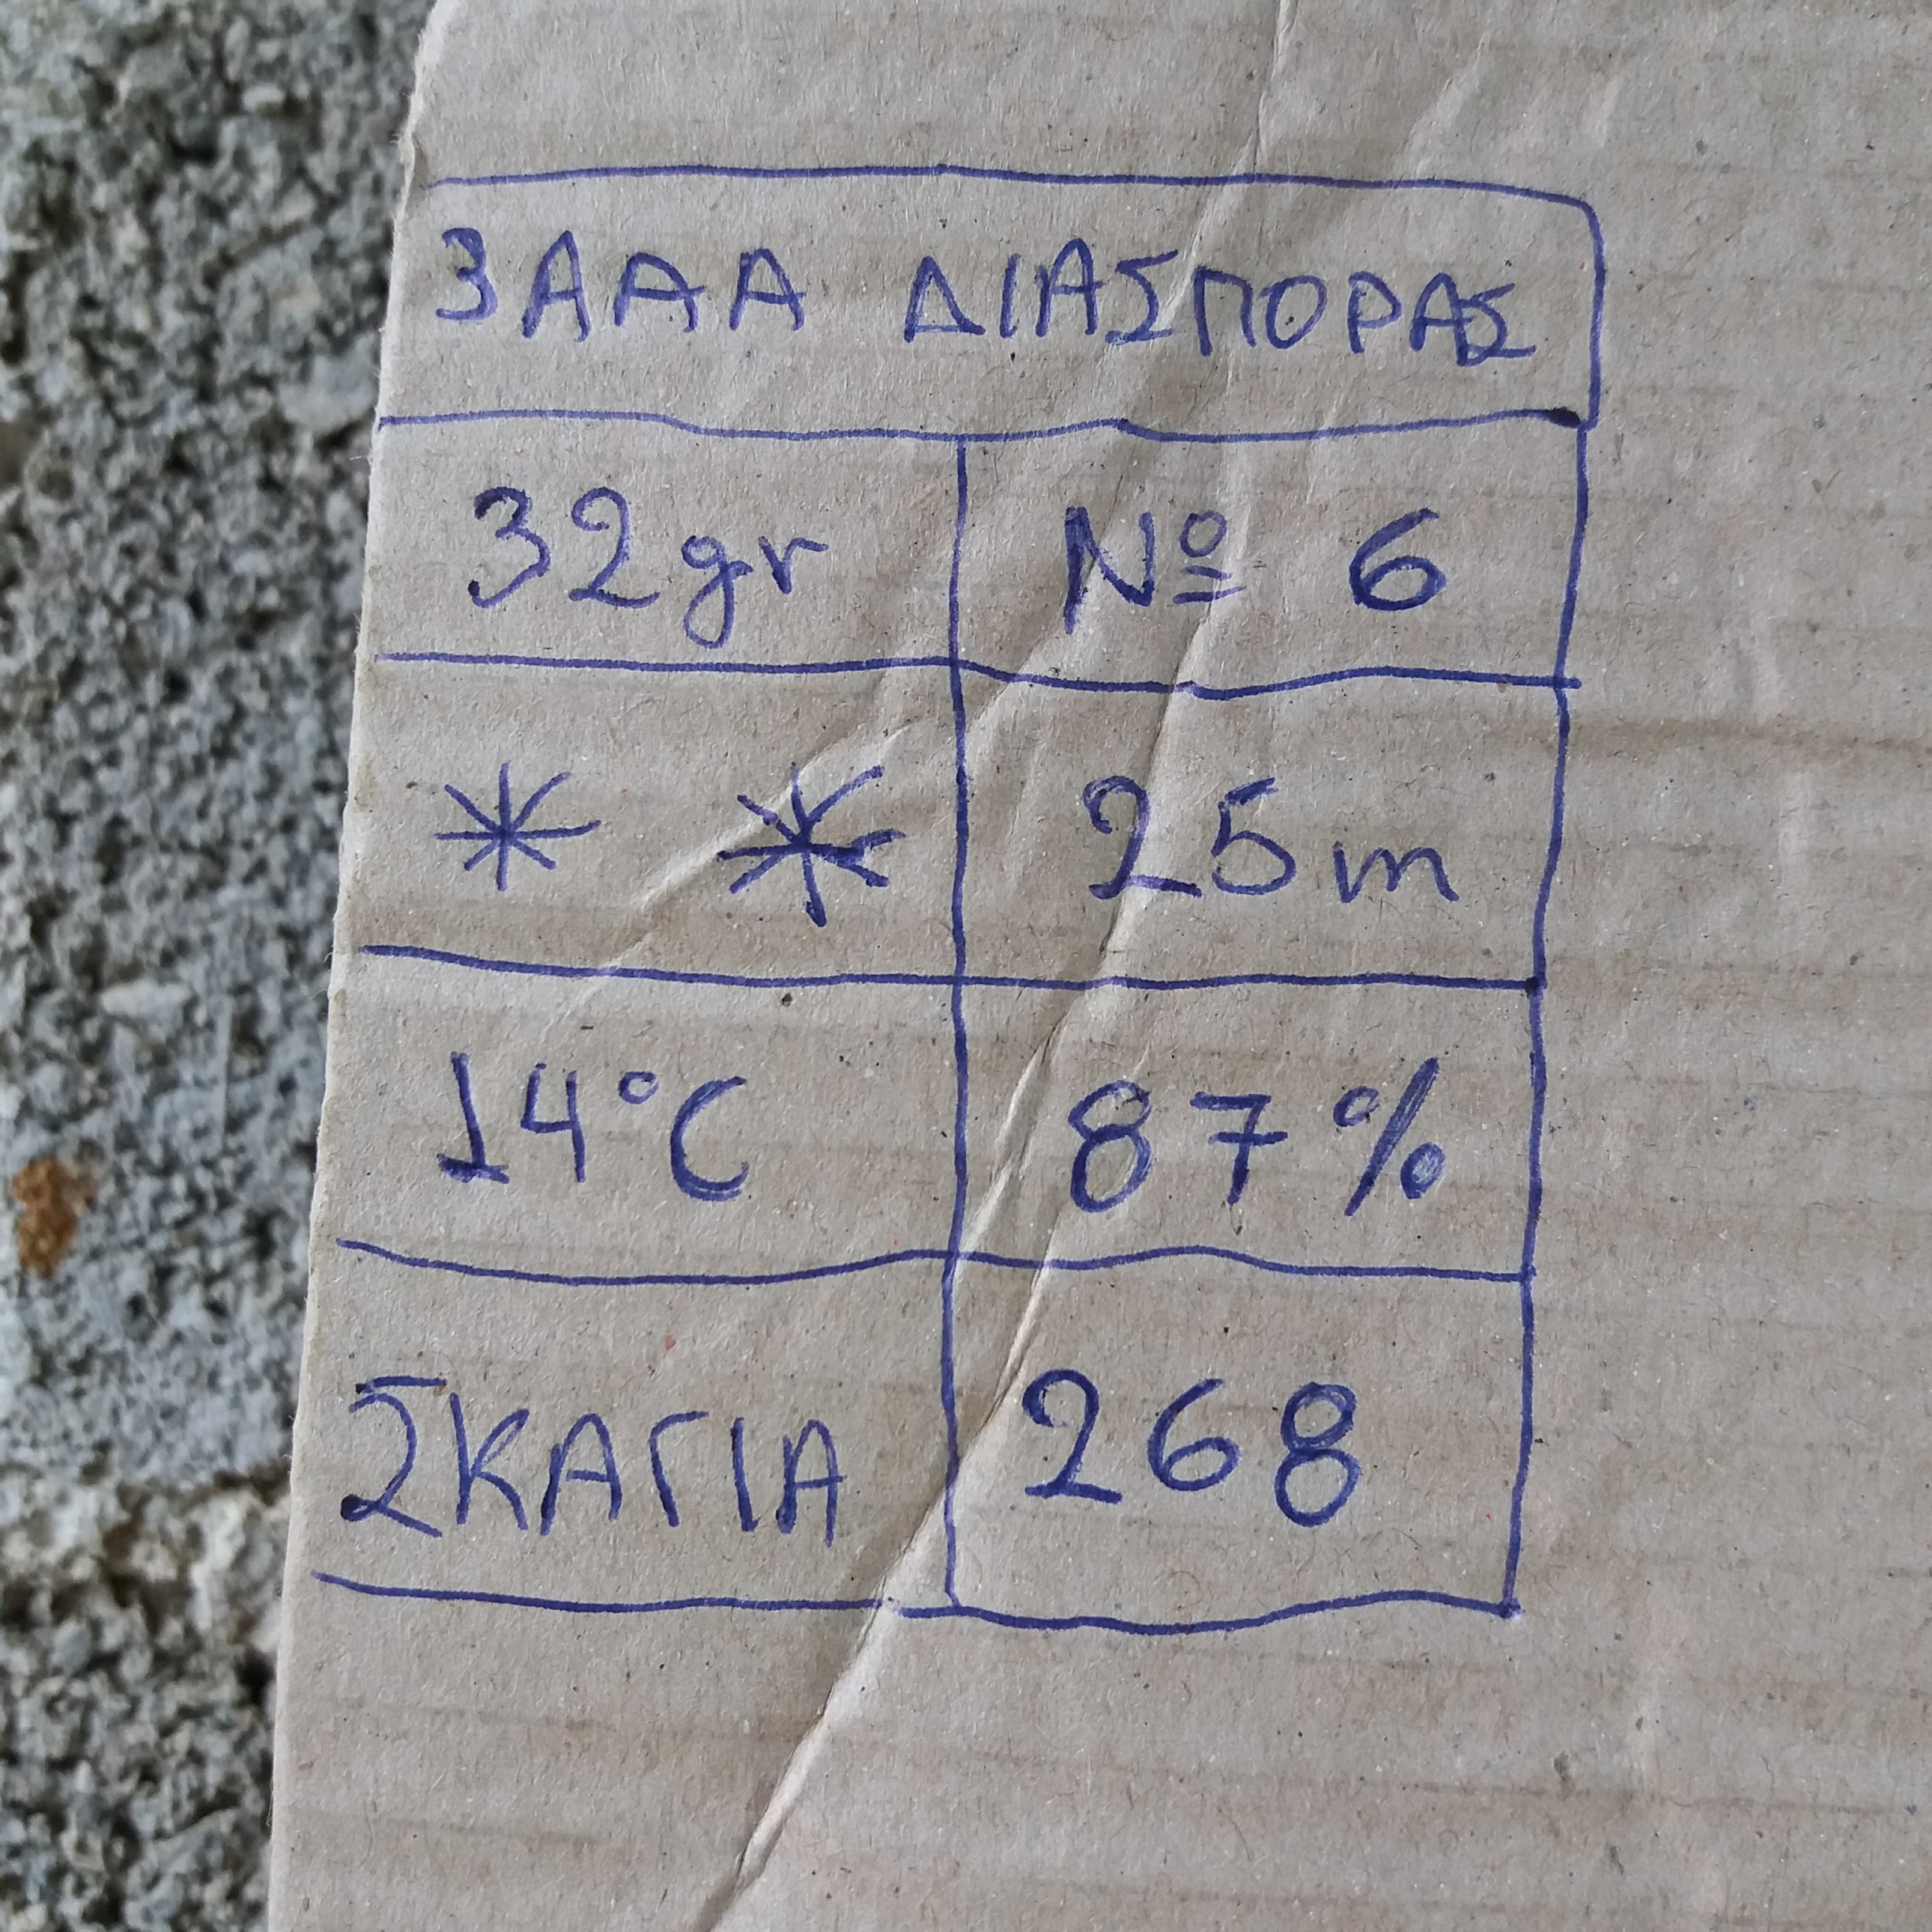 3ΑΑΑ ΔΙΑΣΠΟΡΑΣ
32gr Nº 6
* * 25m
14°C 87%
ΣΚΑΓΙΑ 268